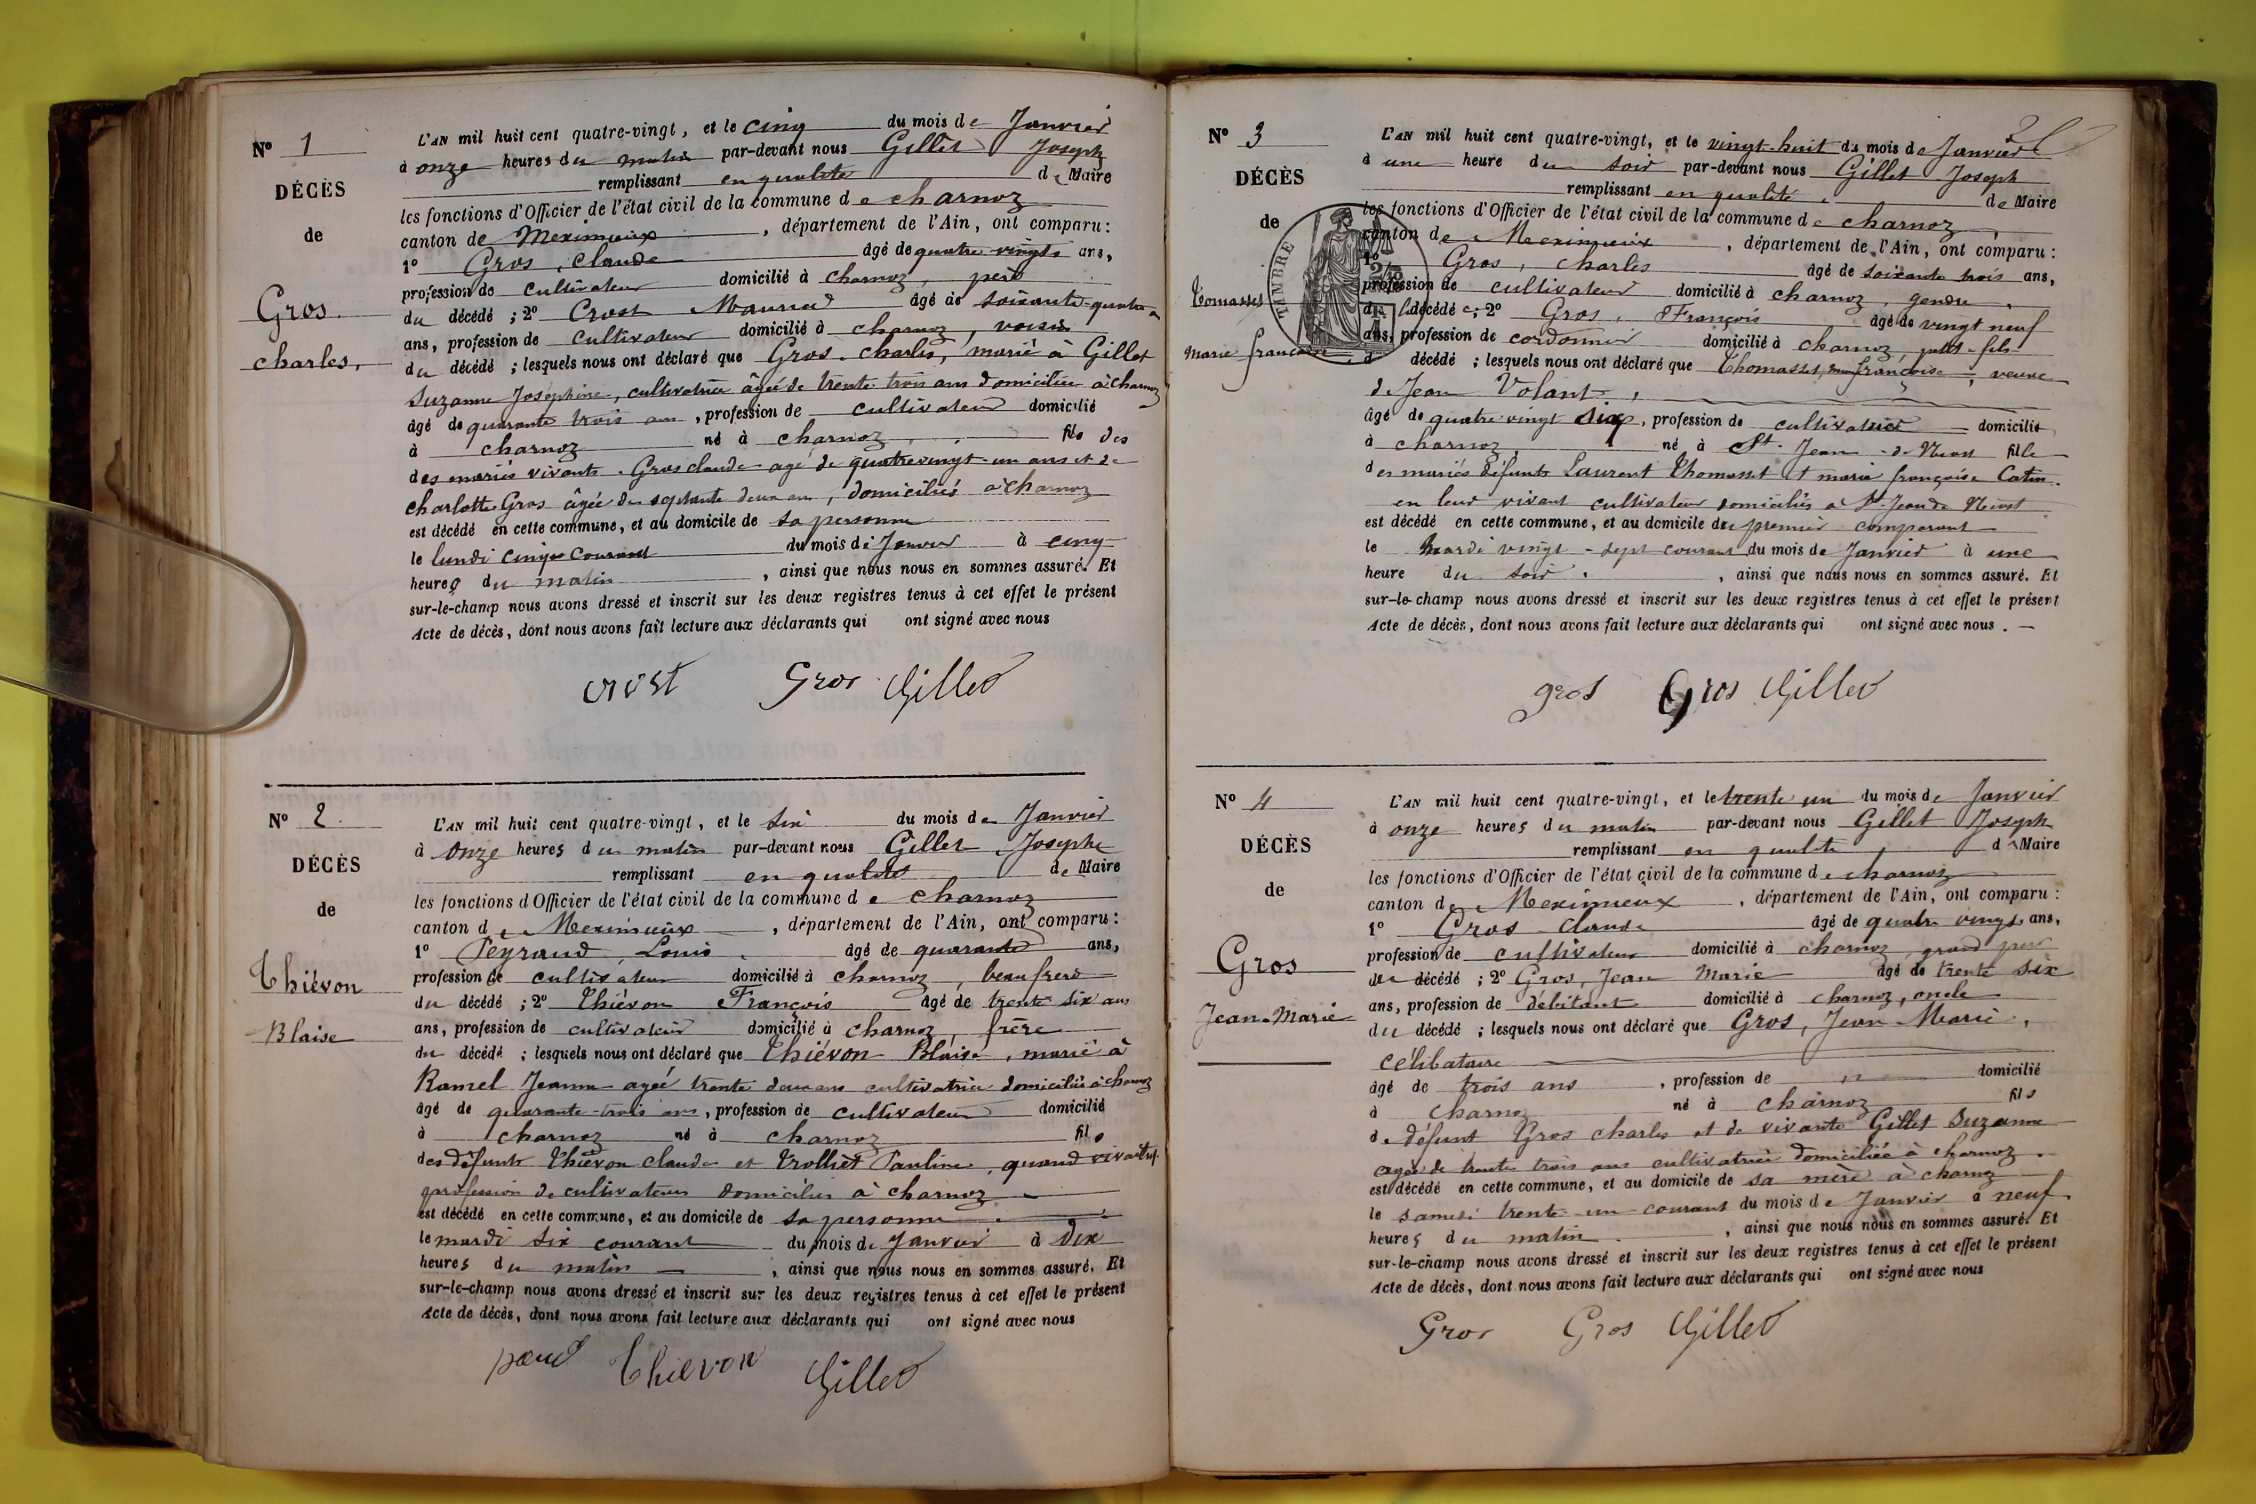 N° 1
DÉCÈS
de
Gros
charles,
L'AN mil huit cent quatre-vingt, et le cinq du mois de Janvier
à onze heures du matin par-devant nous Gillet Joseph
remplissant en qualité de Maire
les fonctions d'Officier de l'état civil de la commune de charnoz
canton de Meximieux, département de l'Ain, ont comparu :
1° Gros, Claude âgé de quatre vingts ans,
profession de cultivateur domicilié à charnoz, père
du décédé ; 2° Crost Maurice âgé de soixante-quatre
ans, profession de cultivateur domicilié à charnoz, voisin
du décédé ; lesquels nous ont déclaré que Gros charles, marié à Gillet
Suzanne Joséphine, cultivatrice âgée de trente trois ans domiciliée à charnoz
âgé de quarante trois ans, profession de cultivateur domicilié
à charnoz né à charnoz fils des
des mariés vivants Gros claude agé de quatrevingt-un ans et de
charlotte Gros âgée de septante deux ans, domiciliés à charnoz
est décédé en cette commune, et au domicile de sa personne
le lundi cinq courant du mois de Janvier à cinq
heures du matin, ainsi que nous nous en sommes assuré. Et
sur-le-champ nous avons dressé et inscrit sur les deux registres tenus à cet effet le présent
Acte de décès, dont nous avons fait lecture aux déclarants qui ont signé avec nous
crost Gros Gillet
N° 2
DÉCÈS
de
Thiévon
Blaise
L'AN mil huit cent quatre-vingt, et le six du mois de Janvier
à onze heures du matin par-devant nous Gillet Josephe
remplissant en qualité de Maire
les fonctions d'Officier de l'état civil de la commune de charnoz
canton de Meximieux, département de l'Ain, ont comparu :
1° Peyraud, Louis âgé de quarante ans,
profession de cultivateur domicilié à charnoz, beau frère
du décédé ; 2° Thiévon François âgé de trente six ans
ans, profession de cultivateur domicilié à charnoz, frère
du décédé ; lesquels nous ont déclaré que Thiévon Blaise, marié à
Ramel Jeanne agée trente deux ans cultivatrice domiciliée à charnoz
âgé de quarante-trois ans, profession de cultivateur domicilié
à charnoz né à charnoz fils
des défunts Thiévon claude et Trolliet Pauline, quand vivaient
profession de cultivateurs domiciliés à charnoz
est décédé en cette commune, et au domicile de sa personne
le mardi six courant du mois de Janvier à dix
heures du matin, ainsi que nous nous en sommes assuré. Et
sur-le-champ nous avons dressé et inscrit sur les deux registres tenus à cet effet le présent
Acte de décès, dont nous avons fait lecture aux déclarants qui ont signé avec nous
Thievon Gillet
N° 3
DÉCÈS
de
Tomasset
marie françoise
TIMBRE
L'AN mil huit cent quatre-vingt, et le vingt-huit du mois de Janvier
à une heure du soir par-devant nous Gillet Joseph
remplissant en qualité de Maire
les fonctions d'Officier de l'état civil de la commune de charnoz
canton de Meximieux, département de l'Ain, ont comparu :
1° Gros, Charles âgé de soixante trois ans,
profession de cultivateur domicilié à charnoz, gendre
de la décédée ; 2° Gros, François âgé de vingt neuf
ans, profession de cordonnier domicilié à charnoz, petit-fils
d décédé ; lesquels nous ont déclaré que Thomasset, françoise, veuve
de Jean Volant,
âgé de quatre vingt six, profession de cultivatrice domicilié
à charnoz né à St. Jean de Niost fille
des mariés défunts Laurent Thomasset et marie françoise Catin
en leur vivant cultivateur domiciliés à St. Jean de Niost
est décédé en cette commune, et au domicile du premier comparant
le mardi vingt-sept courant du mois de Janvier à une
heure du soir, ainsi que nous nous en sommes assuré. Et
sur-le-champ nous avons dressé et inscrit sur les deux registres tenus à cet effet le présent
Acte de décès, dont nous avons fait lecture aux déclarants qui ont signé avec nous.
gros Gros Gillet
N° 4
DÉCÈS
de
Gros
Jean-Marie
L'AN mil huit cent quatre-vingt, et le trente un du mois de Janvier
à onze heures du matin par-devant nous Gillet Joseph
remplissant en qualité de Maire
les fonctions d'Officier de l'état civil de la commune de charnoz
canton de Meximieux, département de l'Ain, ont comparu :
1° Gros Claude âgé de quatre vingts ans,
profession de cultivateur domicilié à charnoz, grand père
du décédé ; 2° Gros, Jean Marie âgé de trente six
ans, profession de débitant domicilié à charnoz, oncle
du décédé ; lesquels nous ont déclaré que Gros, Jean-Marie,
célibataire
âgé de trois ans, profession de domicilié
à charnoz né à charnoz fils
de défunt Gros charles et de vivante Gillet Suzanne
agée de trente trois ans cultivatrice domiciliée à charnoz
est décédé en cette commune, et au domicile de sa mère à charnoz
le samedi trente-un courant du mois de Janvier à neuf
heures du matin, ainsi que nous nous en sommes assuré. Et
sur-le-champ nous avons dressé et inscrit sur les deux registres tenus à cet effet le présent
Acte de décès, dont nous avons fait lecture aux déclarants qui ont signé avec nous
Gros Gros Gillet